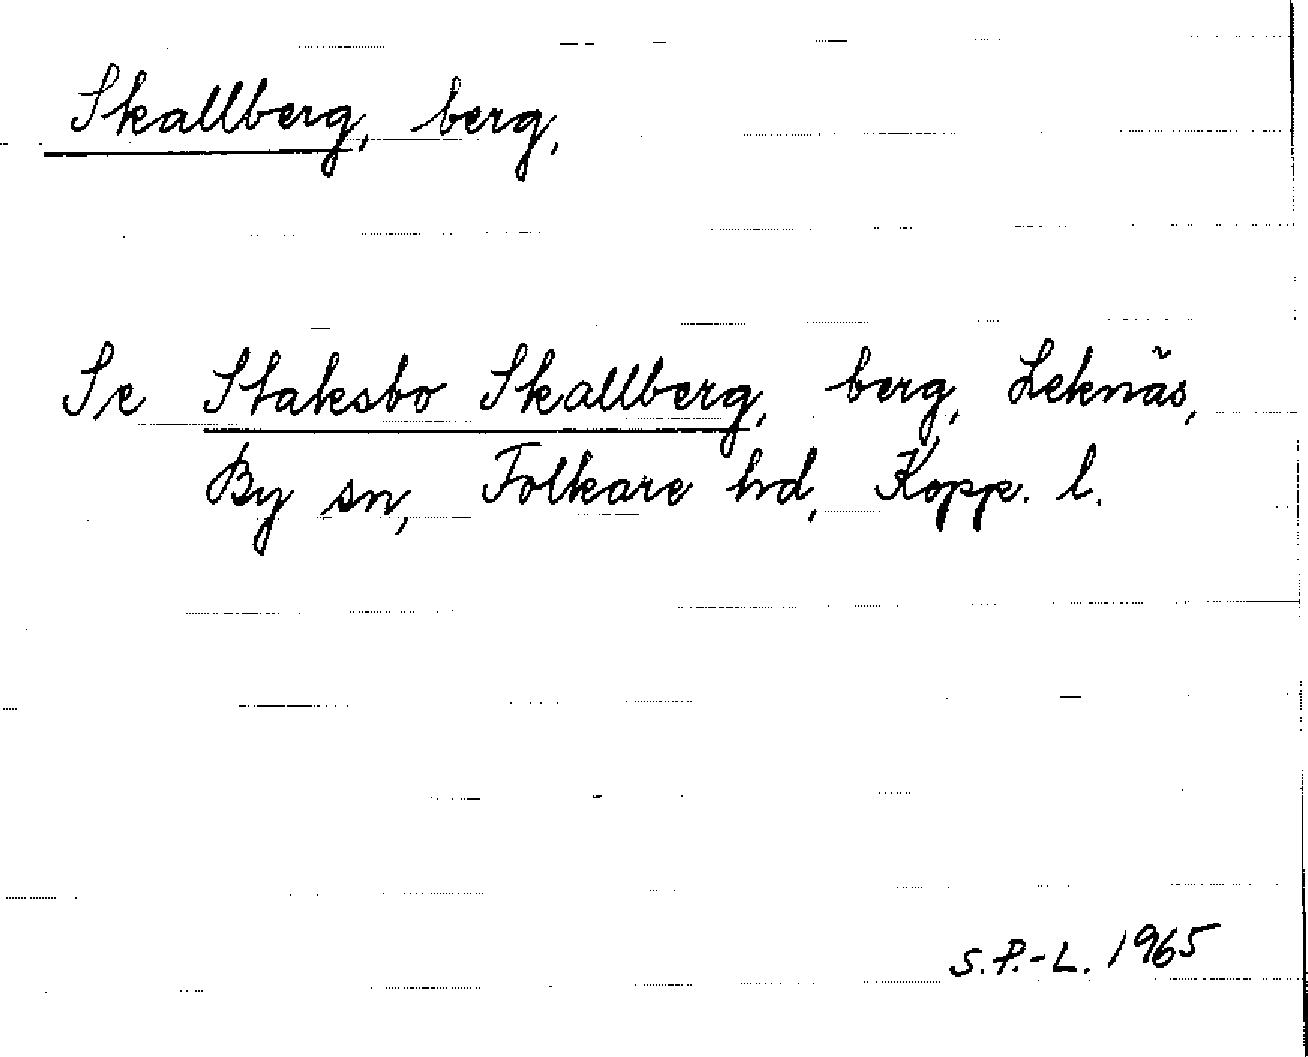 Skallberg, berg,
Se Staksbo Skallberg, berg, Leknäs,
By sn, Folkare hd, Kopp. l.
S.P.-L. 1965